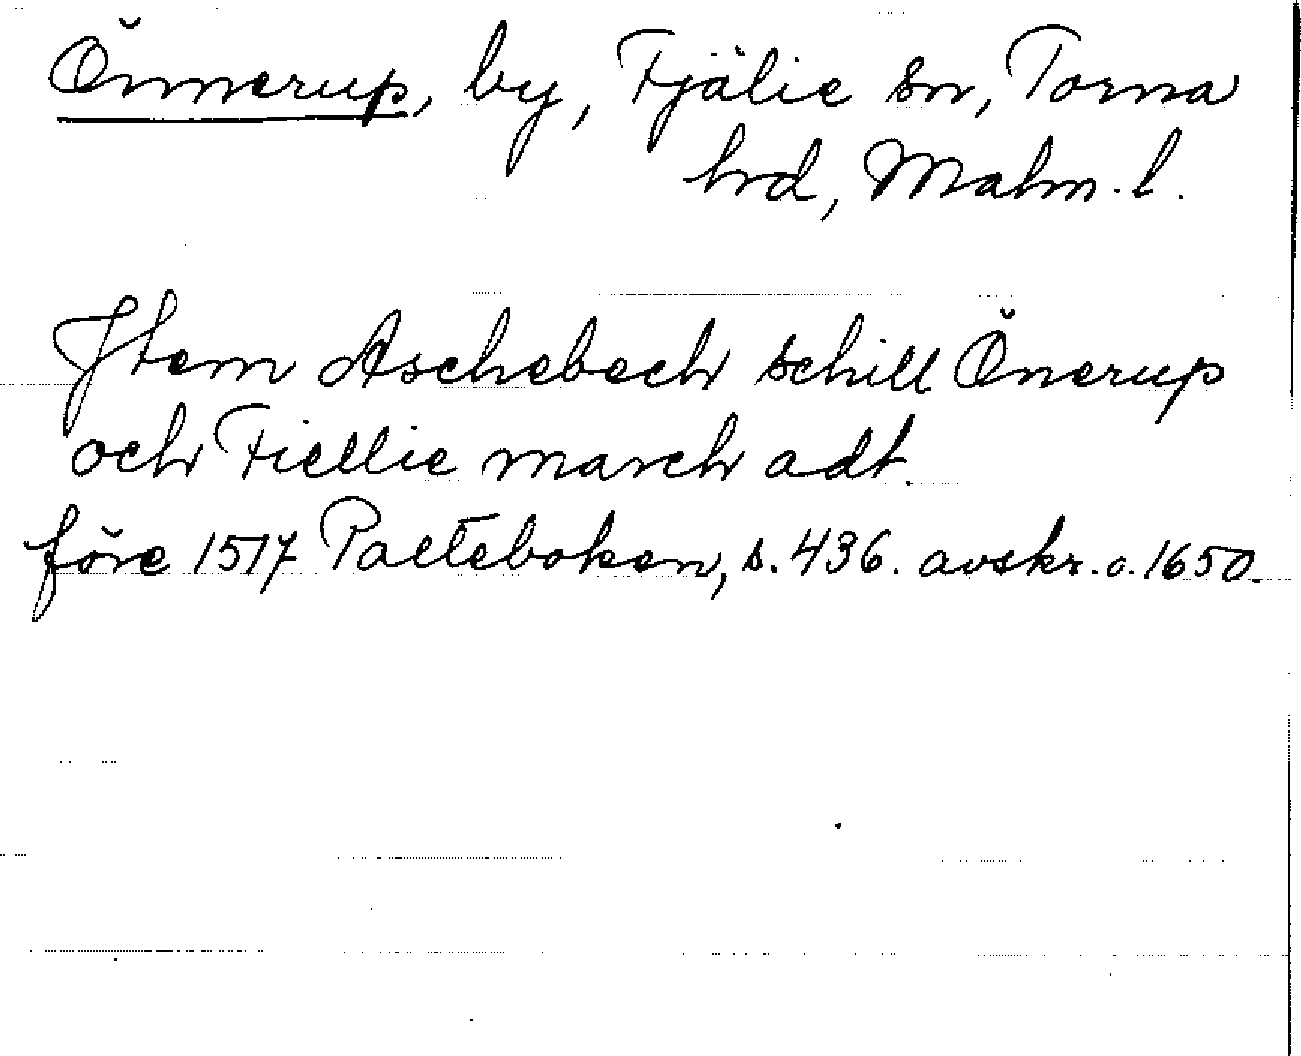 Önnerup, by, Fjälie sn, Torna
hrd, Malm. l.
Jtem Aschebech schill Önerup
och Fiellie march adt.
före 1517 Palteboken, s. 436. avskr. o. 1650.